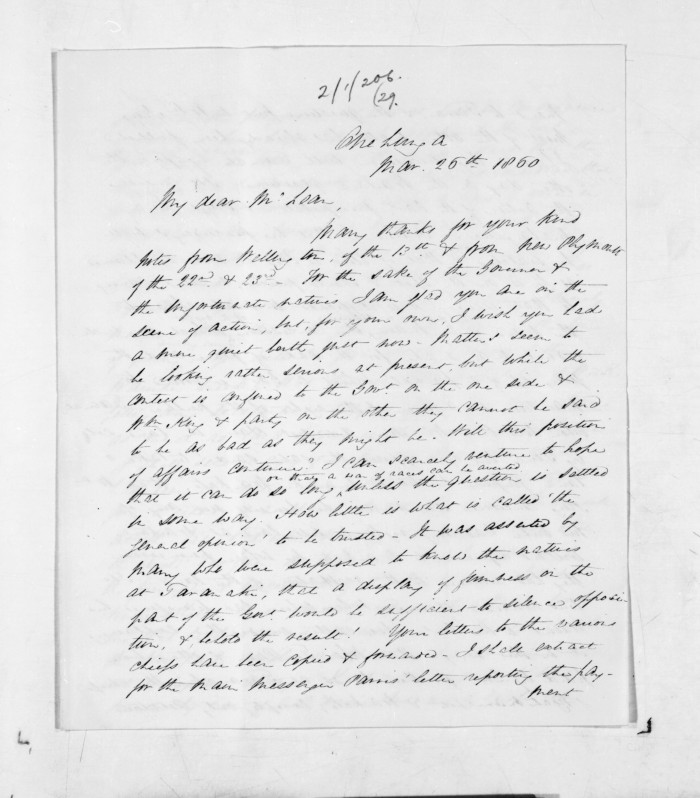 2/1/206.
/29.
Onehunga
Mar. 26th 1860
My dear McLean,
Many thanks for your kind
notes from Wellington, of the 13th & from New Plymouth
of the 22nd & 23rd. For the sake of the Governor &
the unfortunate natives I am glad you are on the
scene of action, but, for your own, I wish you had
a more quiet berth just now. Matters seem to
be looking rather serious at present, but while the
contest is confined to the Govt. on the one side &
Wm. King & party on the other they cannot be said
to be as bad as they might be. Will this position
of affairs continue? I can scarcely venture to hope
or that a war of races can be averted
that it can do so long, unless the question is settled
in some way. How little is what is called 'the
general opinion' to be trusted - It was asserted by
many who were supposed to know the natives
at Taranaki, that a display of firmness on the
part of the Govt. would be sufficient to silence opposi-
tion, & behold the result! Your letters to the various
chiefs have been copied & forwarded - I shall extract
for the Maori Messenger Parris' letter reporting the pay-
ment